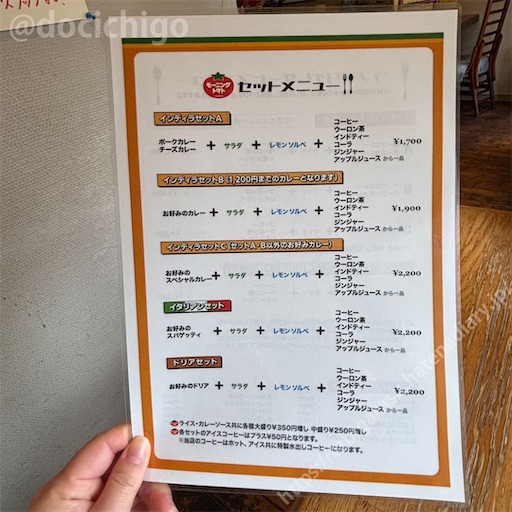 @docichigo
モーニング
トマト
セットメニュー
インディラセットA
ポークカレー
チーズカレー
+ サラダ + レモンソルベ +
コーヒー
ウーロン茶
インドティー
コーラ
ジンジャー
アップルジュース から一品
¥1,700
インディラセットB (1,200円までのカレーとなります)
お好みのカレー + サラダ + レモンソルベ +
コーヒー
ウーロン茶
インドティー
コーラ
ジンジャー
アップルジュース から一品
¥1,900
インディラセットC (セットA・B以外のお好みカレー)
お好みの
スペシャルカレー + サラダ + レモンソルベ +
コーヒー
ウーロン茶
インドティー
コーラ
ジンジャー
アップルジュース から一品
¥2,200
イタリアンセット
お好みの
スパゲッティ + サラダ + レモンソルベ +
コーヒー
ウーロン茶
インドティー
コーラ
ジンジャー
アップルジュース から一品
¥2,200
ドリアセット
お好みのドリア + サラダ + レモンソルベ +
コーヒー
ウーロン茶
インドティー
コーラ
ジンジャー
アップルジュース から一品
¥2,200
ライス・カレーソース共に各種大盛り¥350円増し 中盛り¥250円増し
各セットのアイスコーヒーはプラス¥50円となります。
※当店のコーヒーはホット、アイス共に特製水出しコーヒーになります。